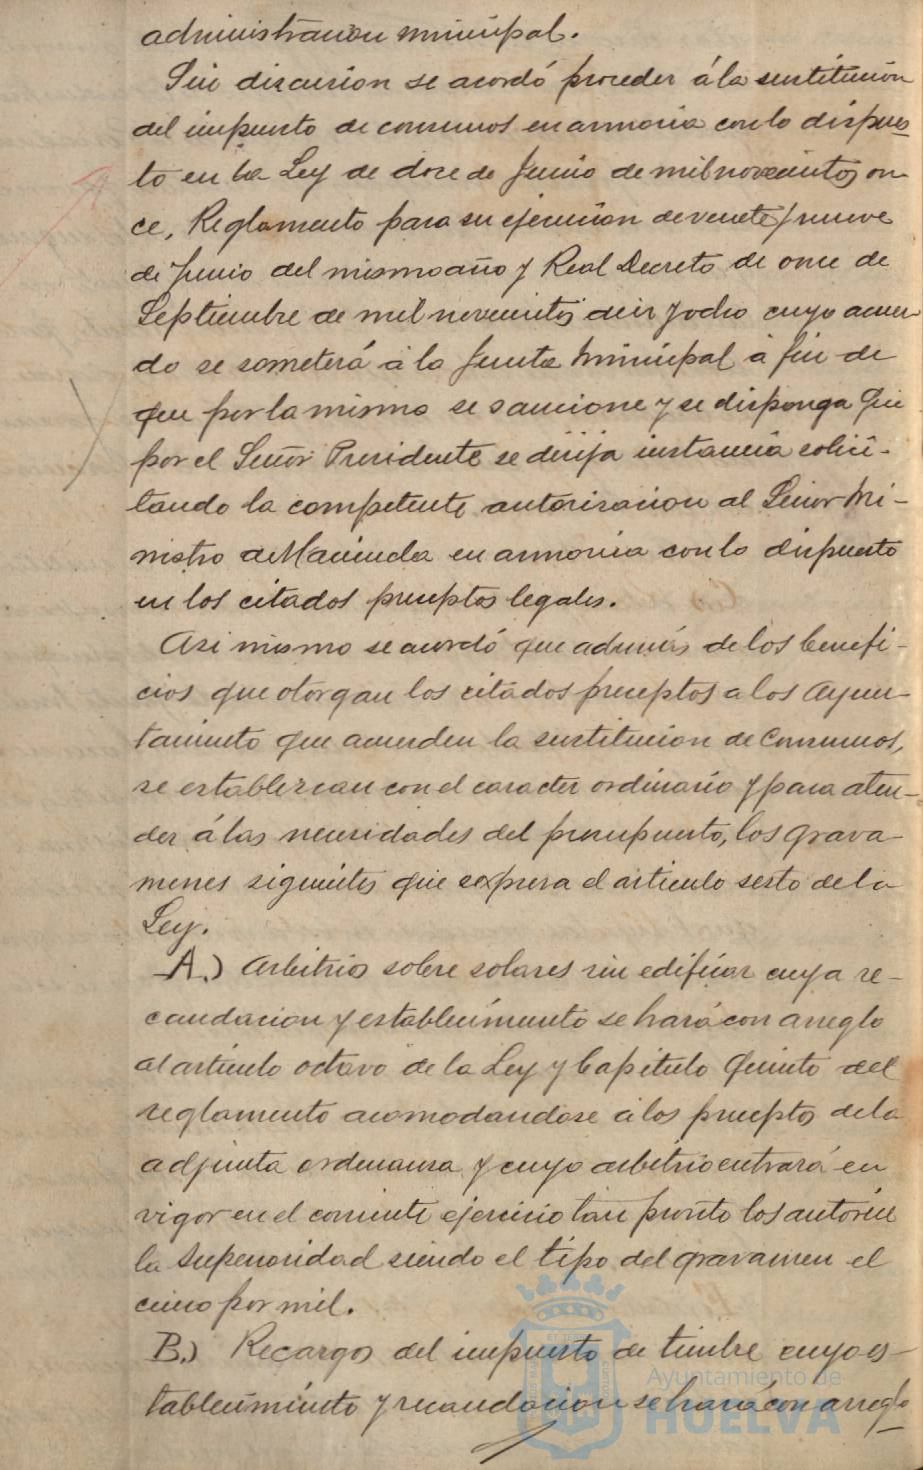 administracion municipal.
Sin discusion se acordó proceder á la sustitucion
del impuesto de consumos en armonia con lo dispues
to en la Ley de doce de Junio de mil novecientos on-
ce, Reglamento para su ejecucion de veinte y nueve
de Junio del mismo año y Real Decreto de once de
Septiembre de mil novecientos diez y ocho cuyo acuer
do se someterá á la Junta Municipal á fin de
que por la misma se sancione y se disponga que
por el Señor Presidente se dirija instancia solici-
tando la competente autorizacion al Señor Mi-
nistro de Hacienda en armonia con lo dispuesto
en los citados preceptos legales.
Asi mismo se acordó que además de los benefi-
cios que otorgan los citados preceptos a los Ayun-
tamiento que acuerden la sustitucion de Consumos,
se establezcan con el caracter ordinario y para aten-
der á las necesidades del presupuesto, los grava-
menes siguientes que expresa el articulo sesto de la
Ley.
A.) Arbitrios sobre solares sin edificar cuya re-
caudacion y establecimiento se hará con arreglo
al articulo octavo de la Ley y Capitulo quinto del
reglamento acomodandose á los preceptos de la
adjunta ordenanza y cuyo arbitrio entrará en
vigor en el corriente ejercicio tan pronto los autorice
la Superioridad siendo el tipo del gravamen el
cinco por mil.
B.) Recargos del impuesto de timbre cuyo es-
tablecimiento y recaudacion se hará con arreglo
Ayuntamiento de
HUELVA